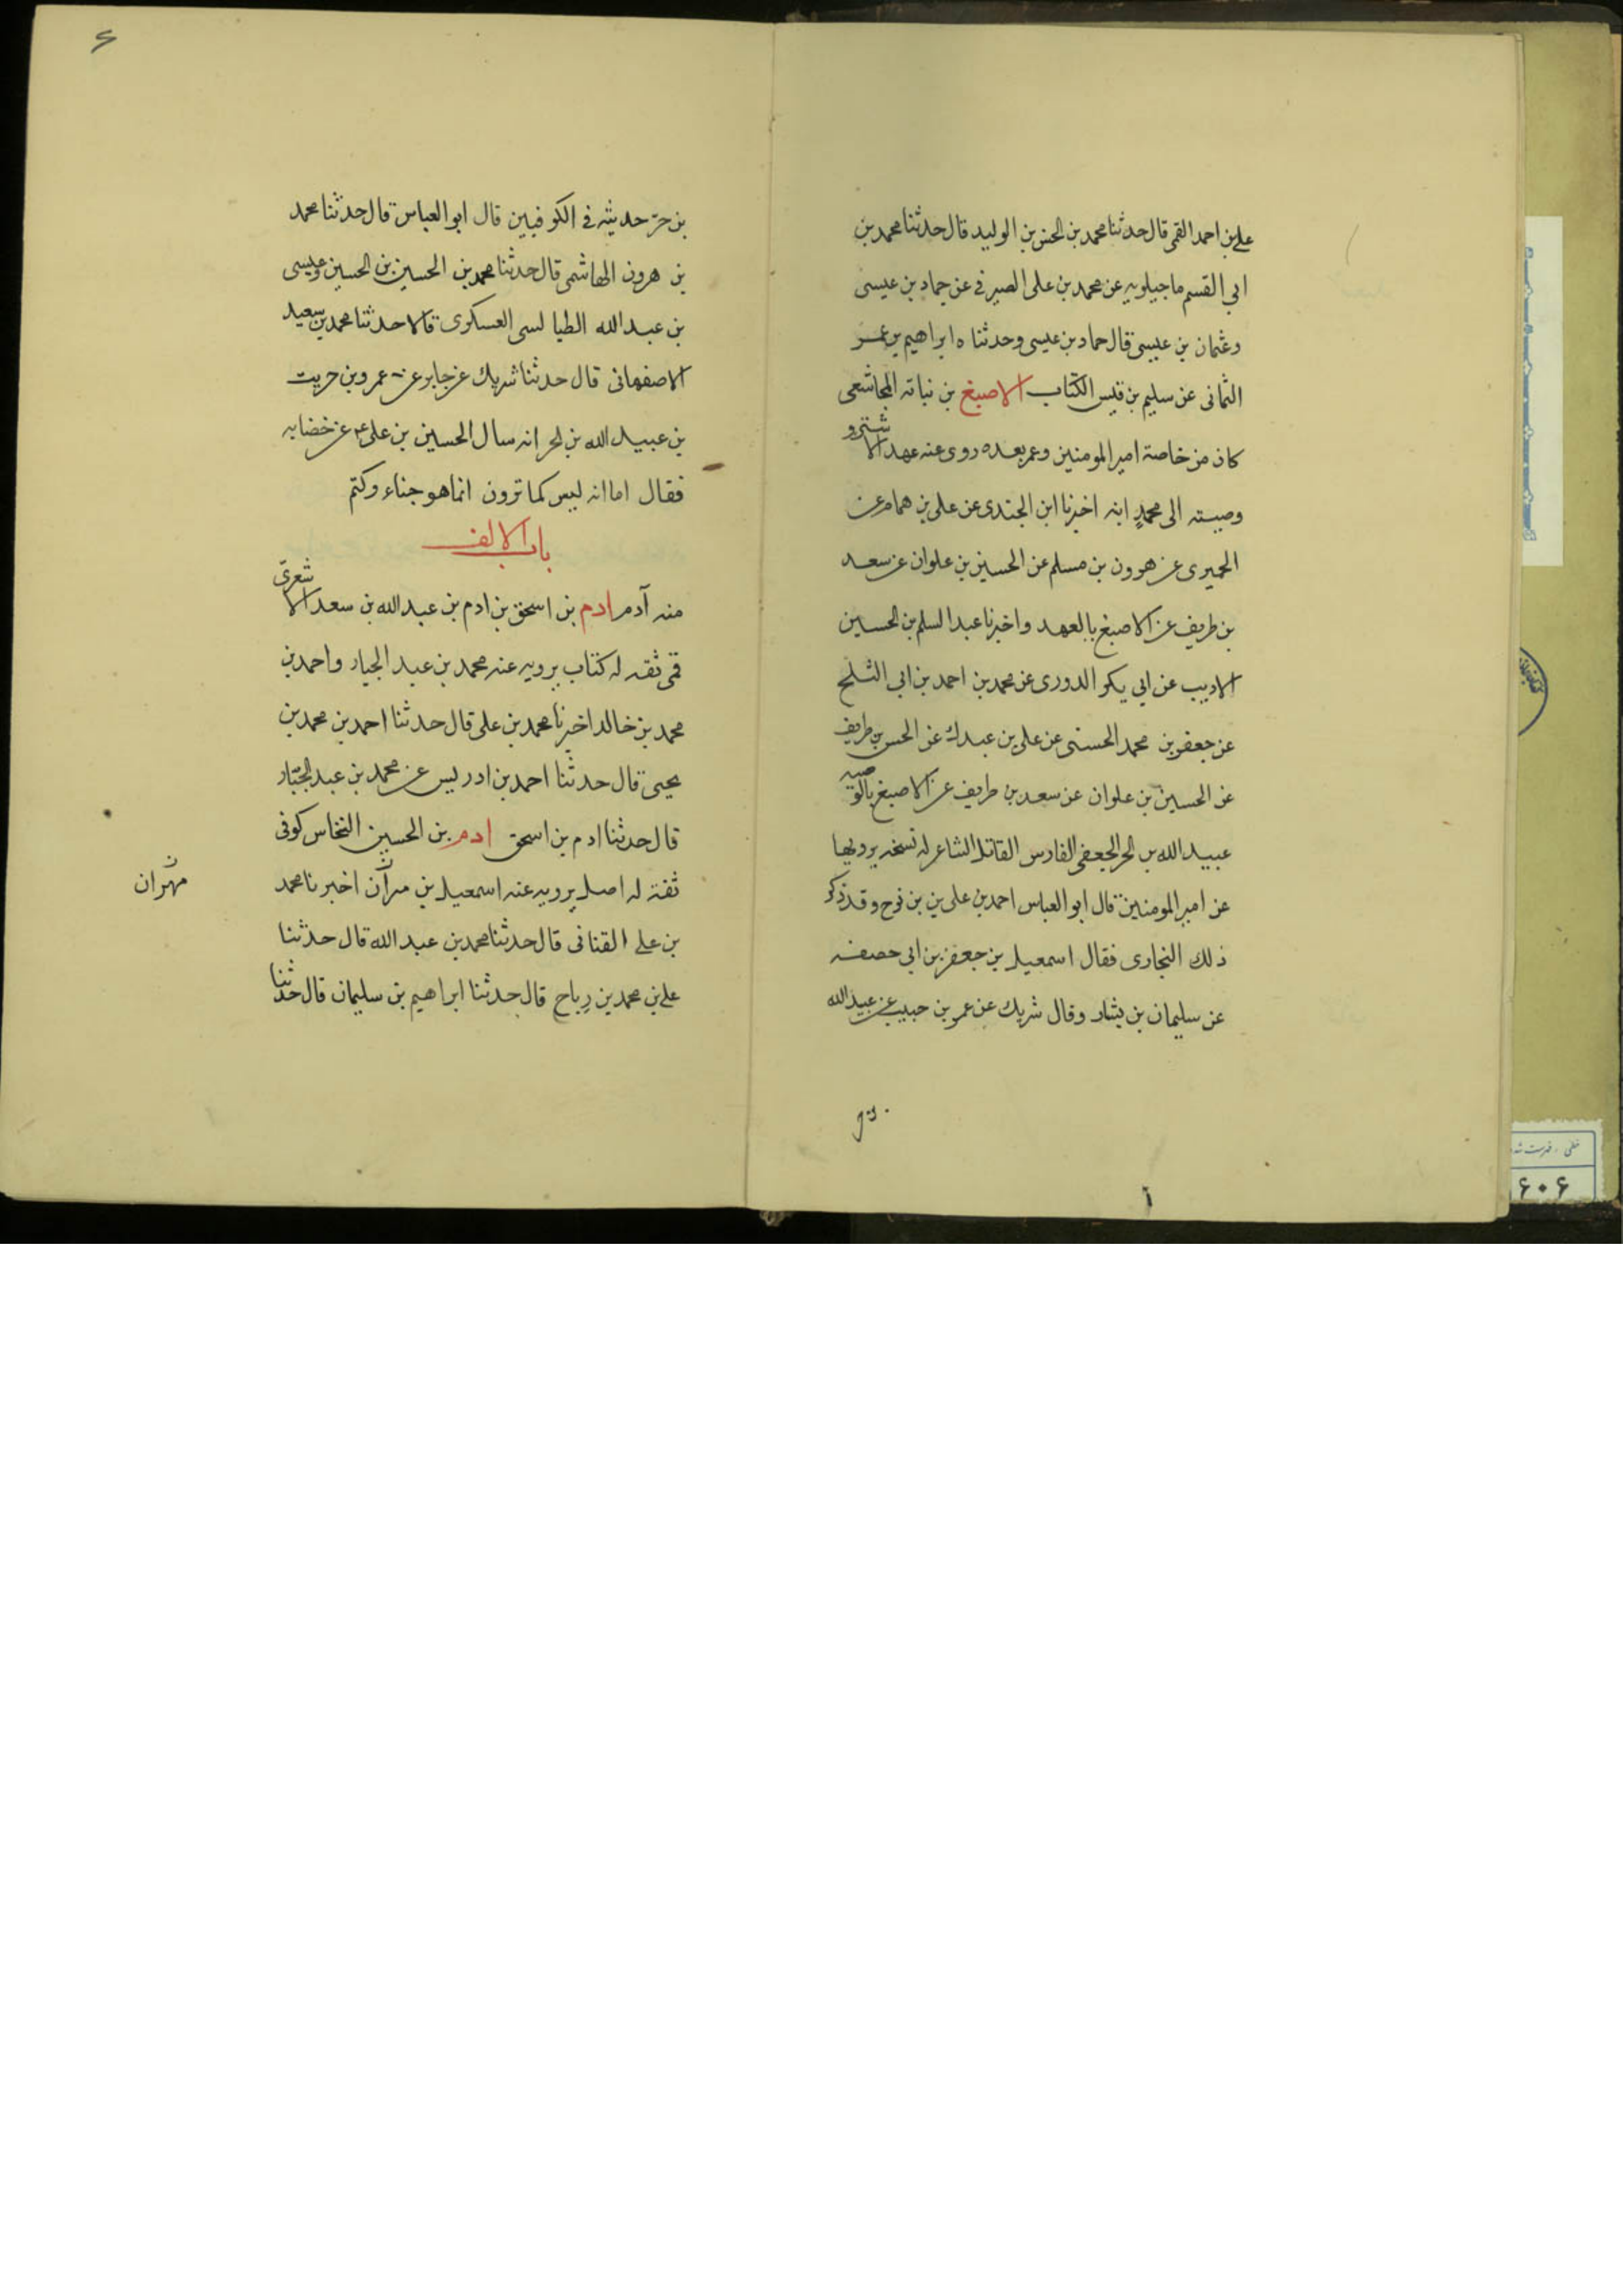 علي بن احمد القمى قال حدثنا محمد بن الحسن بن الوليد قال حدثنا محمد بن
ابي القسم ماجيلويه عن محمد بن على الصيرفي عن حماد بن عيسى
وعثمان بن عيسى قال حماد بن عيسى وحدثناه ابراهيم بن عمر
الثمانى عن سليم بن قيس الكتاب الاصبغ بن نباته المجاشعى
كان من خاصة امير المومنين وعمر بعده روى عنه عهد الاشتر و
وصيته الى محمدٍ ابنه اخبرنا ابن الجندى عن على بن همام عن
الحميرى عن هرون بن مسلم عن الحسين بن علوان عن سعد
بن طريف عن الاصبغ بالعهد واخبرنا عبد السلم بن الحسين
الاديب عن ابي بكر الدورى عن محمد بن احمد بن ابي الثلج
عن جعفر بن محمد الحسنى عن على بن عبدك عن الحسن بن طريف
عن الحسين بن علوان عن سعد بن طريف عن الاصبغ بالوصيه
عبيد الله بن الحر الجعفى الفارس القاتل الشاعر له نسخه يرويها
عن امير المومنين قال ابو العباس احمد بن على بن بن نوح وقد ذكر
ذلك النجارى فقال اسمعيل بن جعفر بن ابي حصفه
عن سليمان بن يشار وقال شريك عن عمر بن حبيب عن عبيد الله
۶
بن حرّ حديثه في الكوفيين قال ابو العباس قال حدثنا محمد
بن هرون الهاشمى قال حدثنا محمد بن الحسين بن الحسين وعيسى
بن عبد الله الطيالسى العسكرى قالا حدثنا محمد بن سعيد
الاصفهانى قال حدثنا شريك عن جابر عن عمرو بن حريت
بن عبيد الله بن الحر انه سال الحسين بن على ع عن خضابه
فقال اما انه ليس كما ترون انما هو حناء وكتم
باب الالف
منه آدم ادم بن اسحق بن ادم بن عبد الله بن سعد الاشعرىّ
قمى ثقه له كتاب يرويه عنه محمد بن عبد الجبار واحمد بن
محمد بن خالد اخبرنا محمد بن على قال حدثنا احمد بن محمد بن
يحيى قال حدثنا احمد بن ادريس عن محمد بن عبد الجبّار
قال حدثنا ادم بن اسحق ادم بن الحسين النخاس كوفى
ثقة له اصل يرويه عنه اسمعيل بن مرآن اخبرنا محمد
مهران
بن على القنانى قال حدثنا محمد بن عبد الله قال حدثنا
على بن محمد بن رباح قال حدثنا ابراهيم بن سليمان قال حدثنا
خطى . فهرست شده
۶۰۶